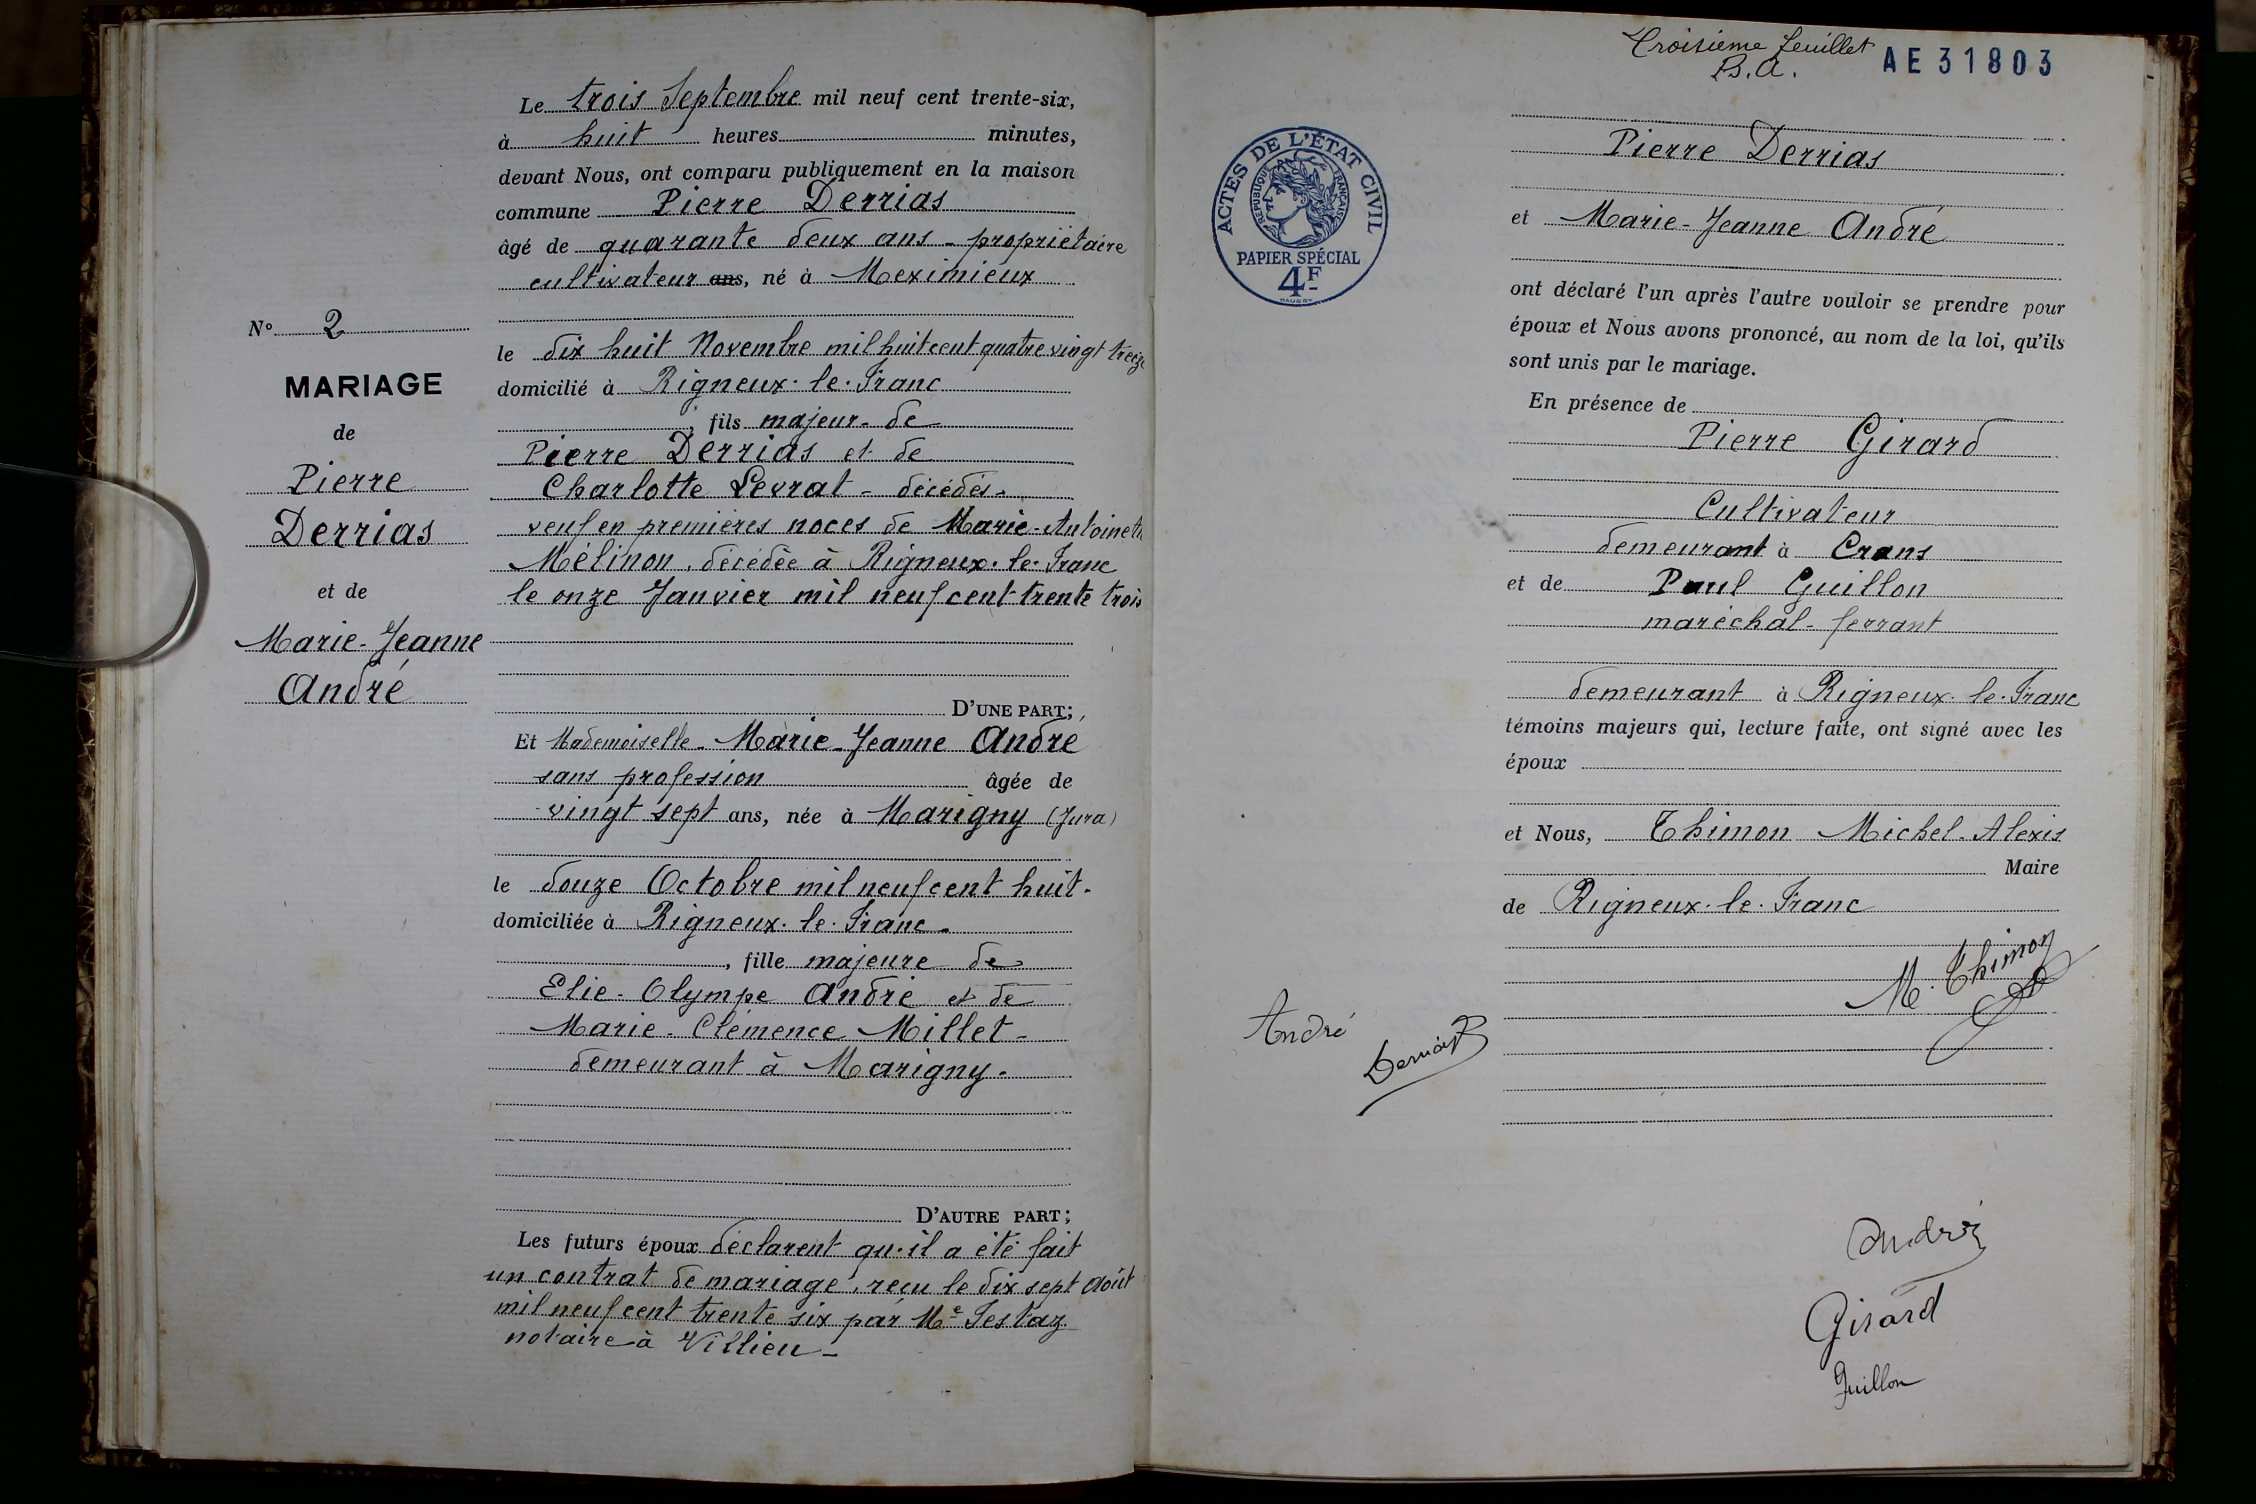 Le trois Septembre mil neuf cent trente-six,
à huit heures minutes,
devant Nous, ont comparu publiquement en la maison
commune Pierre Derrias
âgé de quarante deux ans - propriétaire
cultivateur ans, né à Meximieux
le dix huit Novembre mil huit cent quatre vingt treize
domicilié à Rigneux-le-Franc
, fils majeur de
Pierre Derrias et de
Charlotte Levrat - décédés -
veuf en premières noces de Marie-Antoinette
Mélinon, décédée à Rigneux-le-Franc
le onze Janvier mil neuf cent trente trois
D'UNE PART;
Et Mademoiselle - Marie-Jeanne André
sans profession âgée de
vingt sept ans, née à Marigny (Jura)
le douze Octobre mil neuf cent huit -
domiciliée à Rigneux-le-Franc -
, fille majeure de
Elie-Olympe André et de
Marie-Clémence Millet -
demeurant à Marigny -
D'AUTRE PART;
Les futurs époux déclarent qu'il a été fait
un contrat de mariage, reçu le dix sept Août
mil neuf cent trente six par Me Jestaz
notaire à Villieu -
No 2
MARIAGE
de
Pierre
Derrias
et de
Marie-Jeanne
André
Troisième feuillet
B.A.
AE 31803
ACTES DE L'ÉTAT CIVIL
REPUBLIQUE FRANÇAISE
PAPIER SPÉCIAL
4F
Pierre Derrias
et Marie-Jeanne André
ont déclaré l'un après l'autre vouloir se prendre pour
époux et Nous avons prononcé, au nom de la loi, qu'ils
sont unis par le mariage.
En présence de
Pierre Girard
Cultivateur
demeurant à Crans
et de Paul Guillon
maréchal-ferrant
demeurant à Rigneux-le-Franc
témoins majeurs qui, lecture faite, ont signé avec les
époux
et Nous, Thimon Michel-Alexis
Maire
de Rigneux-le-Franc
M. Thimon
André
Derrias P
André
Girard
Guillon